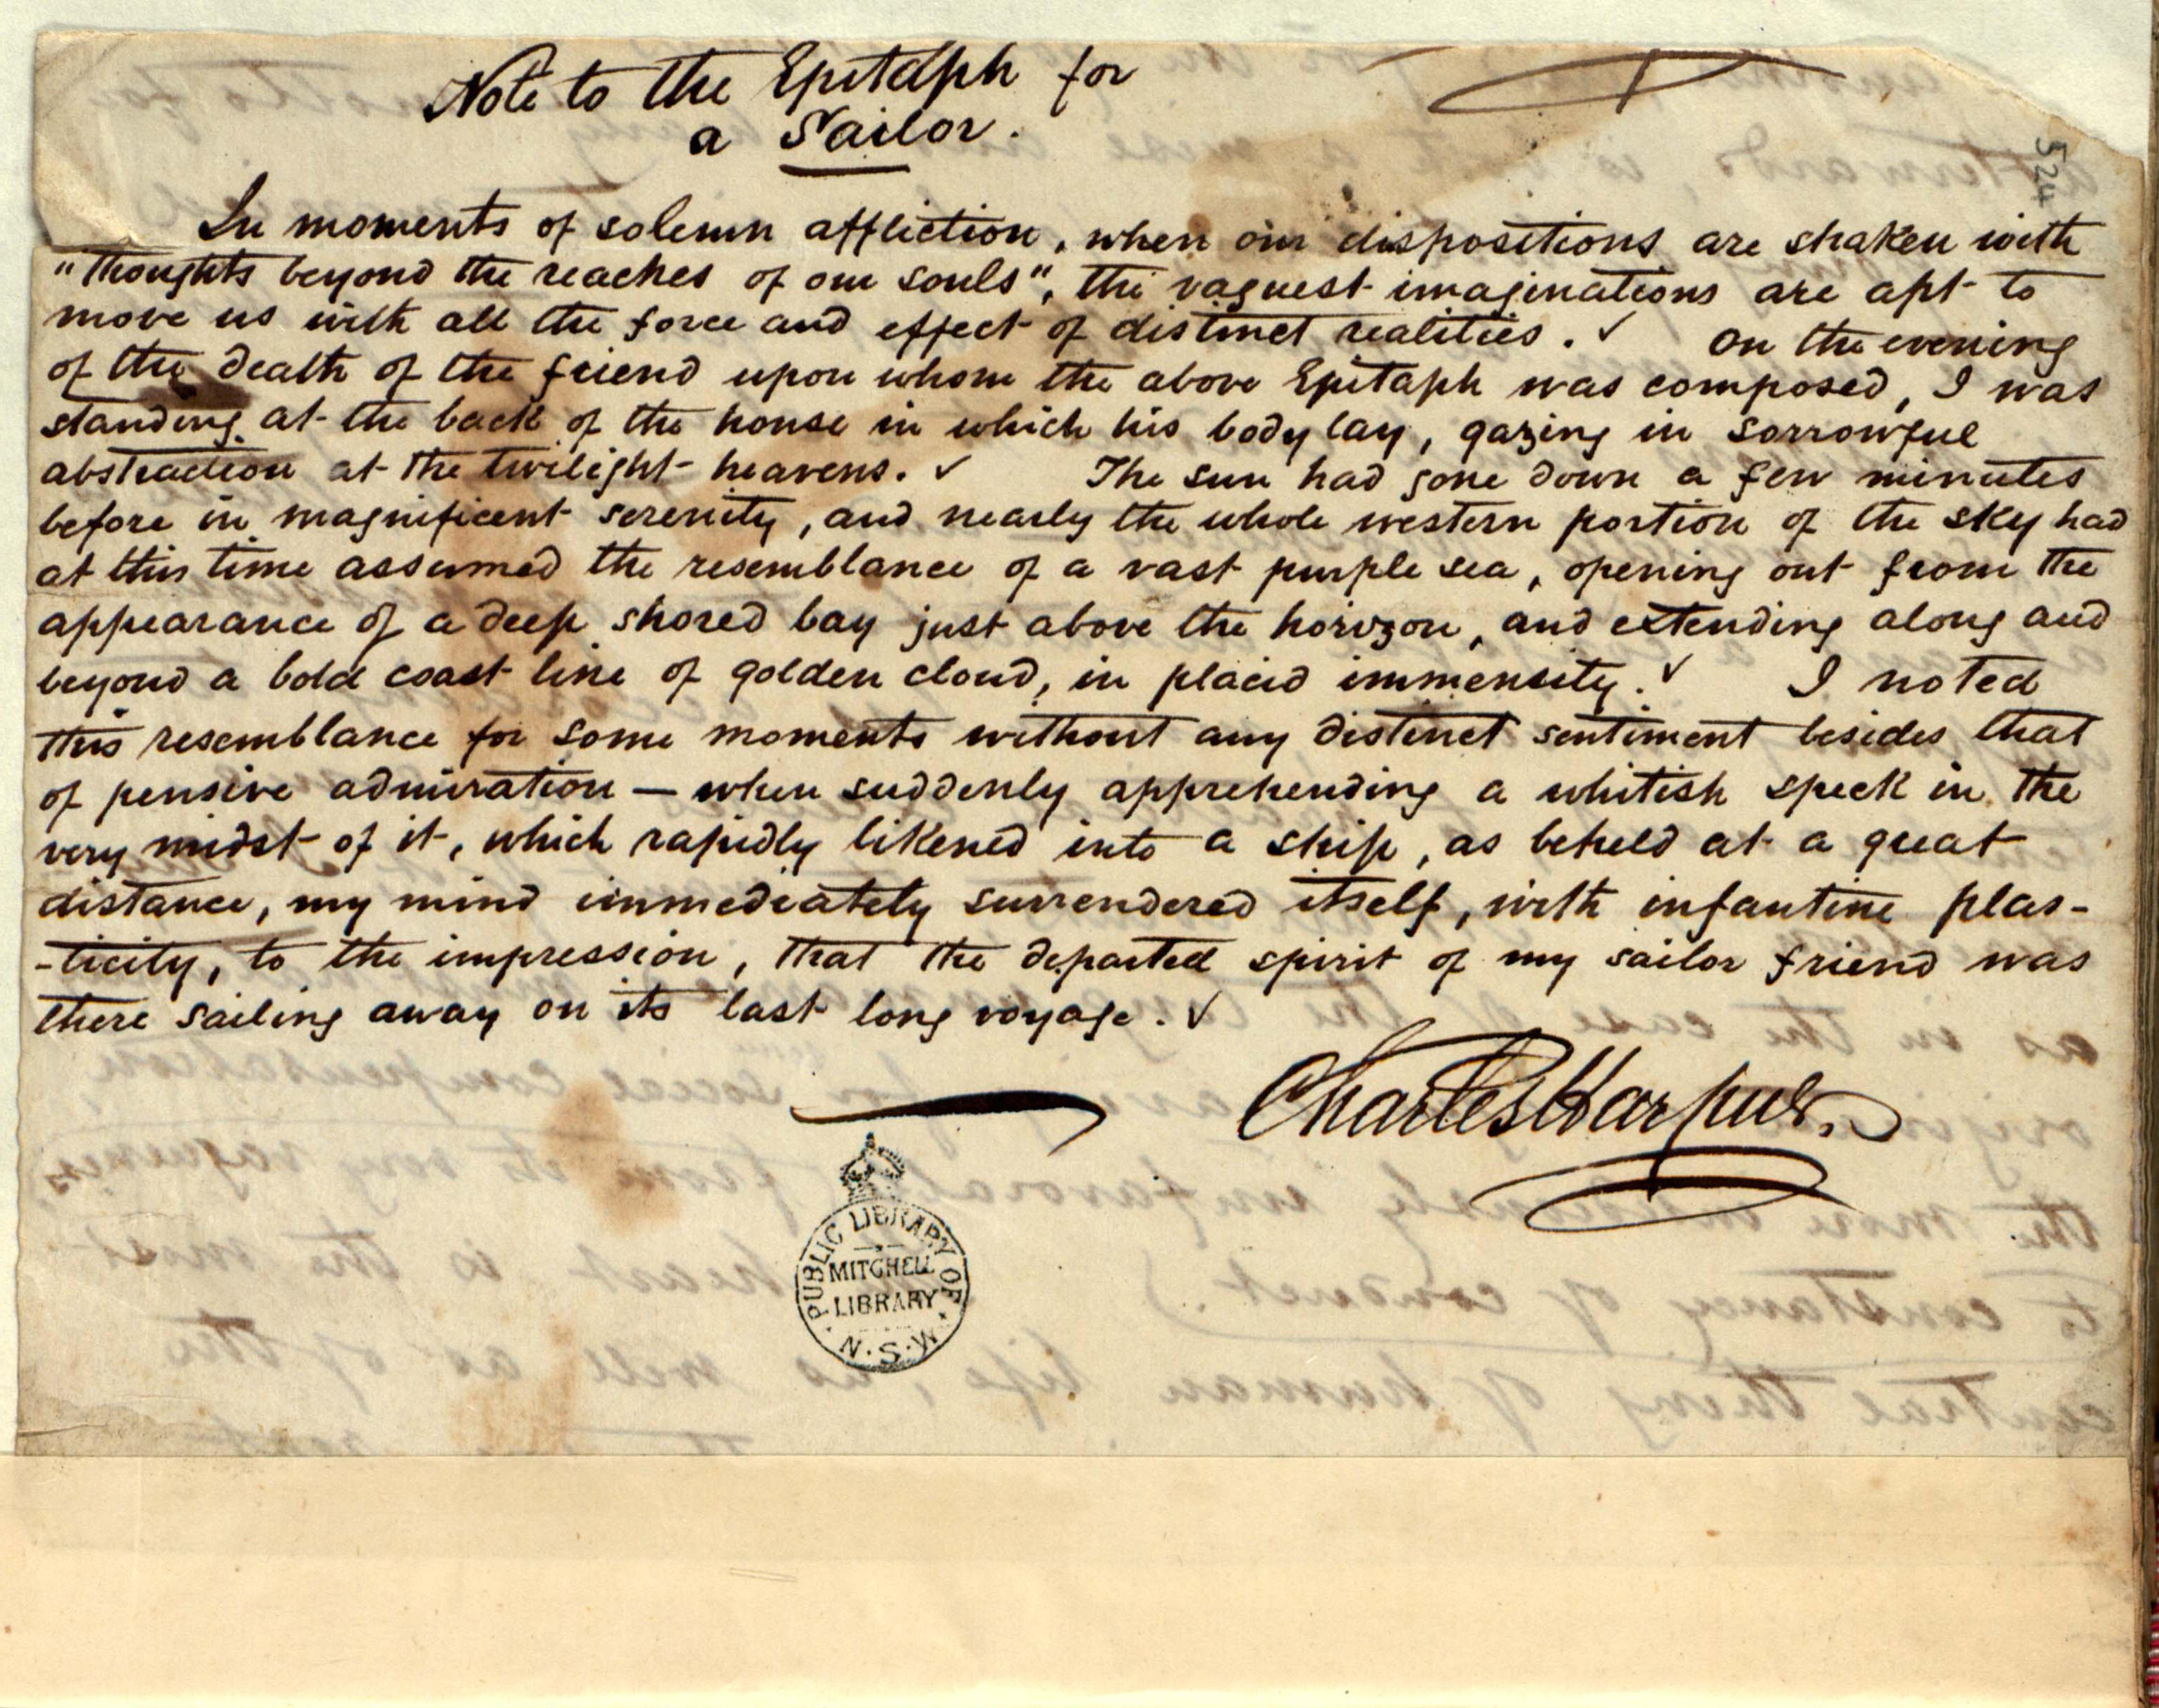 Note to the Epitaph for
a Sailor.
524
In moments of solemn affliction, when our dispositions are shaken with
"thoughts beyond the reaches of our souls", the vaguest imaginations are apt to
move us with all the force and effect of distinct realities. ✓ On the evening
of the death of the friend upon whom the above Epitaph was composed, I was
standing at the back of the house in which his body lay, gazing in sorrowful
abstraction at the twilight heavens. ✓ The sun had gone down a few minutes
before in magnificent serenity, and nearly the whole western portion of the sky had
at this time assumed the resemblance of a vast purple sea, opening out from the
appearance of a deep shored bay just above the horizon, and extending along and
beyond a bold coast line of golden cloud, in placid immensity. ✓ I noted
this resemblance for some moments without any distinct sentiment besides that
of pensive admiration — when suddenly apprehending a whitish speck in the
very midst of it, which rapidly likened into a ship, as beheld at a great
distance, my mind immediately surrendered itself, with infantine plas-
-ticity, to the impression, that the departed spirit of my sailor friend was
there sailing away on its last long voyage. ✓
Charles Harpur.
PUBLIC LIBRARY OF
MITCHELL
LIBRARY
N.S.W.